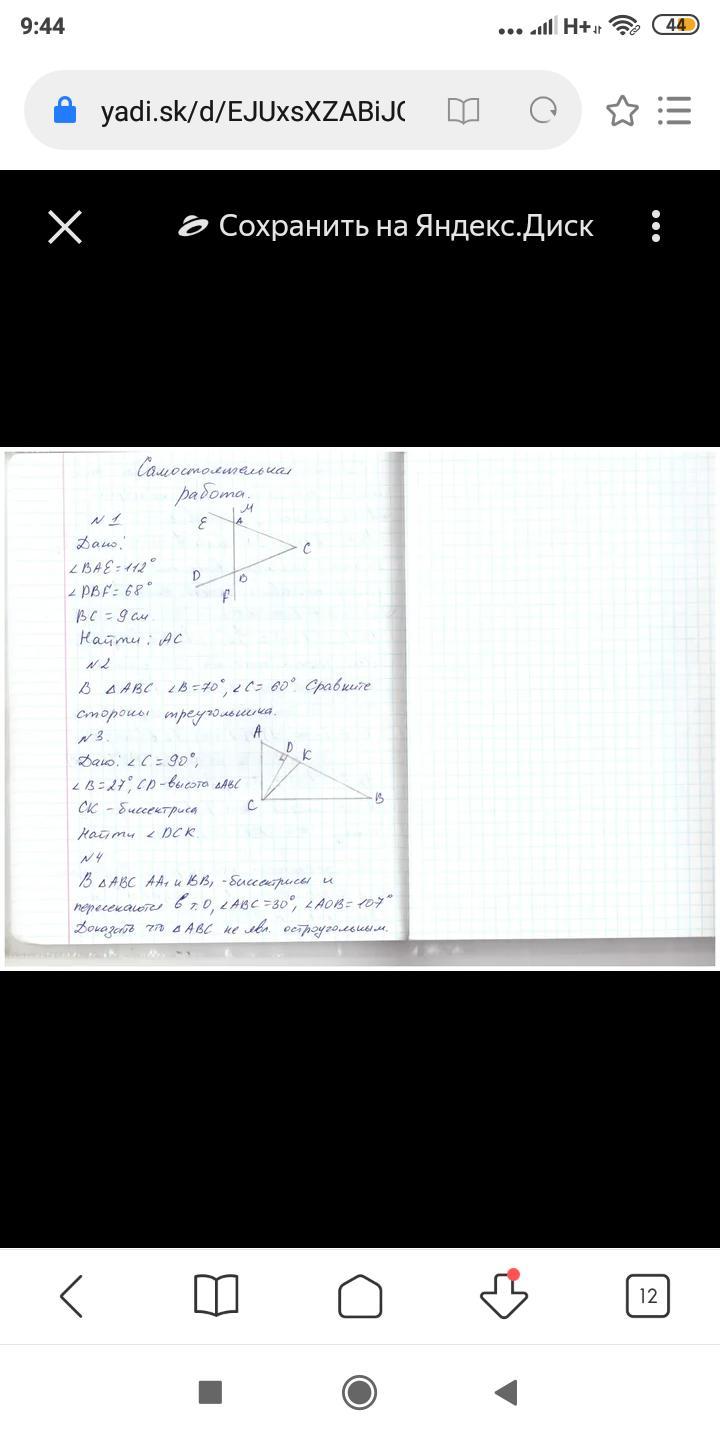 9:44
H+
44
yadi.sk/d/EJUxsXZABiJ
Сохранить на Яндекс.Диск
Самостоятельная
работа.
N 1
M
E
A
Дано:
C
∠BAE=112°
D
B
∠DBF=68°
F
BC=9см.
Найти: AC
N2
В △ABC ∠B=70°, ∠C=60°. Сравните
стороны треугольника.
N3.
A
D
K
Дано: ∠C=90°,
∠B=27°, CD-высота △ABC
B
C
CK - биссектриса
Найти ∠DCK.
N4
В △ABC AA₁ и BB₁ -биссектрисы и
пересекаются в т.O, ∠ABC=30°, ∠AOB=107°
Доказать что △ABC не явл. остроугольным.
12